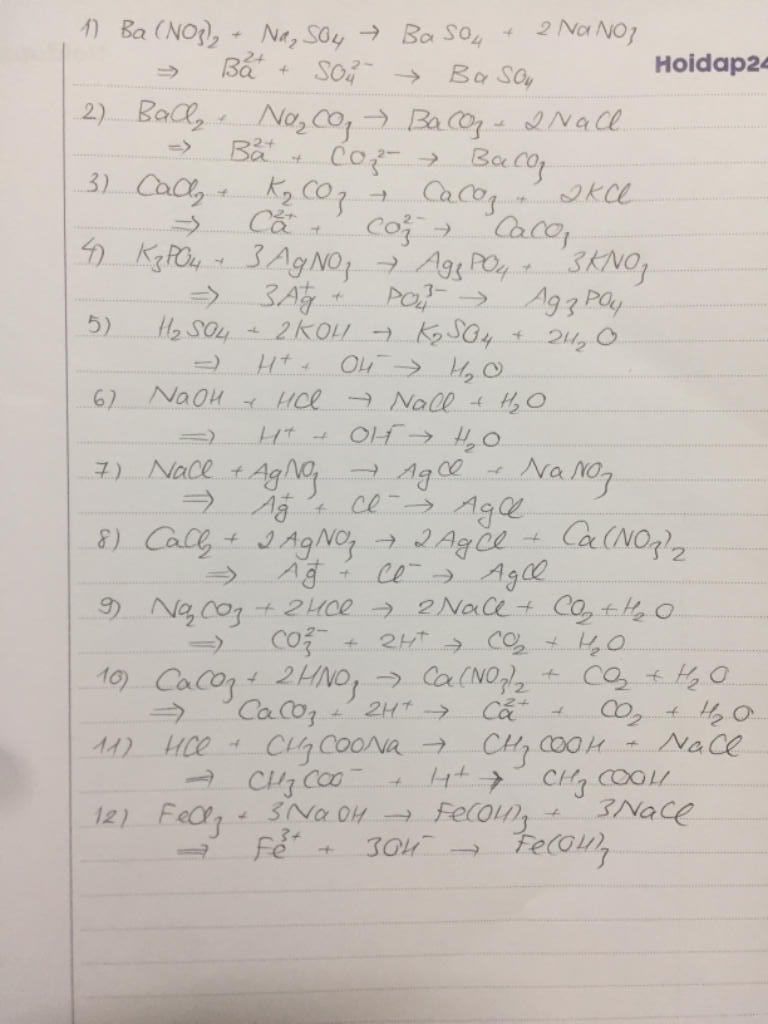 1) Ba(NO3)2 + Na2SO4 → BaSO4 + 2NaNO3
Hoidap24
⇒ Ba²⁺ + SO4²⁻ → BaSO4
2) BaCl2 + Na2CO3 → BaCO3 + 2NaCl
⇒ Ba²⁺ + CO3²⁻ → BaCO3
3) CaCl2 + K2CO3 → CaCO3 + 2KCl
⇒ Ca²⁺ + CO3²⁻ → CaCO3
4) K3PO4 + 3AgNO3 → Ag3PO4 + 3KNO3
⇒ 3Ag⁺ + PO4³⁻ → Ag3PO4
5) H2SO4 + 2KOH → K2SO4 + 2H2O
⇒ H⁺ + OH⁻ → H2O
6) NaOH + HCl → NaCl + H2O
⇒ H⁺ + OH⁻ → H2O
7) NaCl + AgNO3 → AgCl + NaNO3
⇒ Ag⁺ + Cl⁻ → AgCl
8) CaCl2 + 2AgNO3 → 2AgCl + Ca(NO3)2
⇒ Ag⁺ + Cl⁻ → AgCl
9) Na2CO3 + 2HCl → 2NaCl + CO2 + H2O
⇒ CO3²⁻ + 2H⁺ → CO2 + H2O
10) CaCO3 + 2HNO3 → Ca(NO3)2 + CO2 + H2O
⇒ CaCO3 + 2H⁺ → Ca²⁺ + CO2 + H2O
11) HCl + CH3COONa → CH3COOH + NaCl
⇒ CH3COO⁻ + H⁺ → CH3COOH
12) FeCl3 + 3NaOH → Fe(OH)3 + 3NaCl
⇒ Fe³⁺ + 3OH⁻ → Fe(OH)3